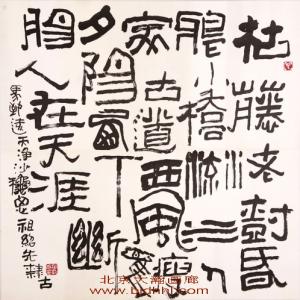 枯藤老樹昏
鴉小橋流水人
家古道西風瘦馬
夕陽西下斷
腸人在天涯
馬致遠天淨沙秋思 祖紹先隸古
北京天瀚画廊